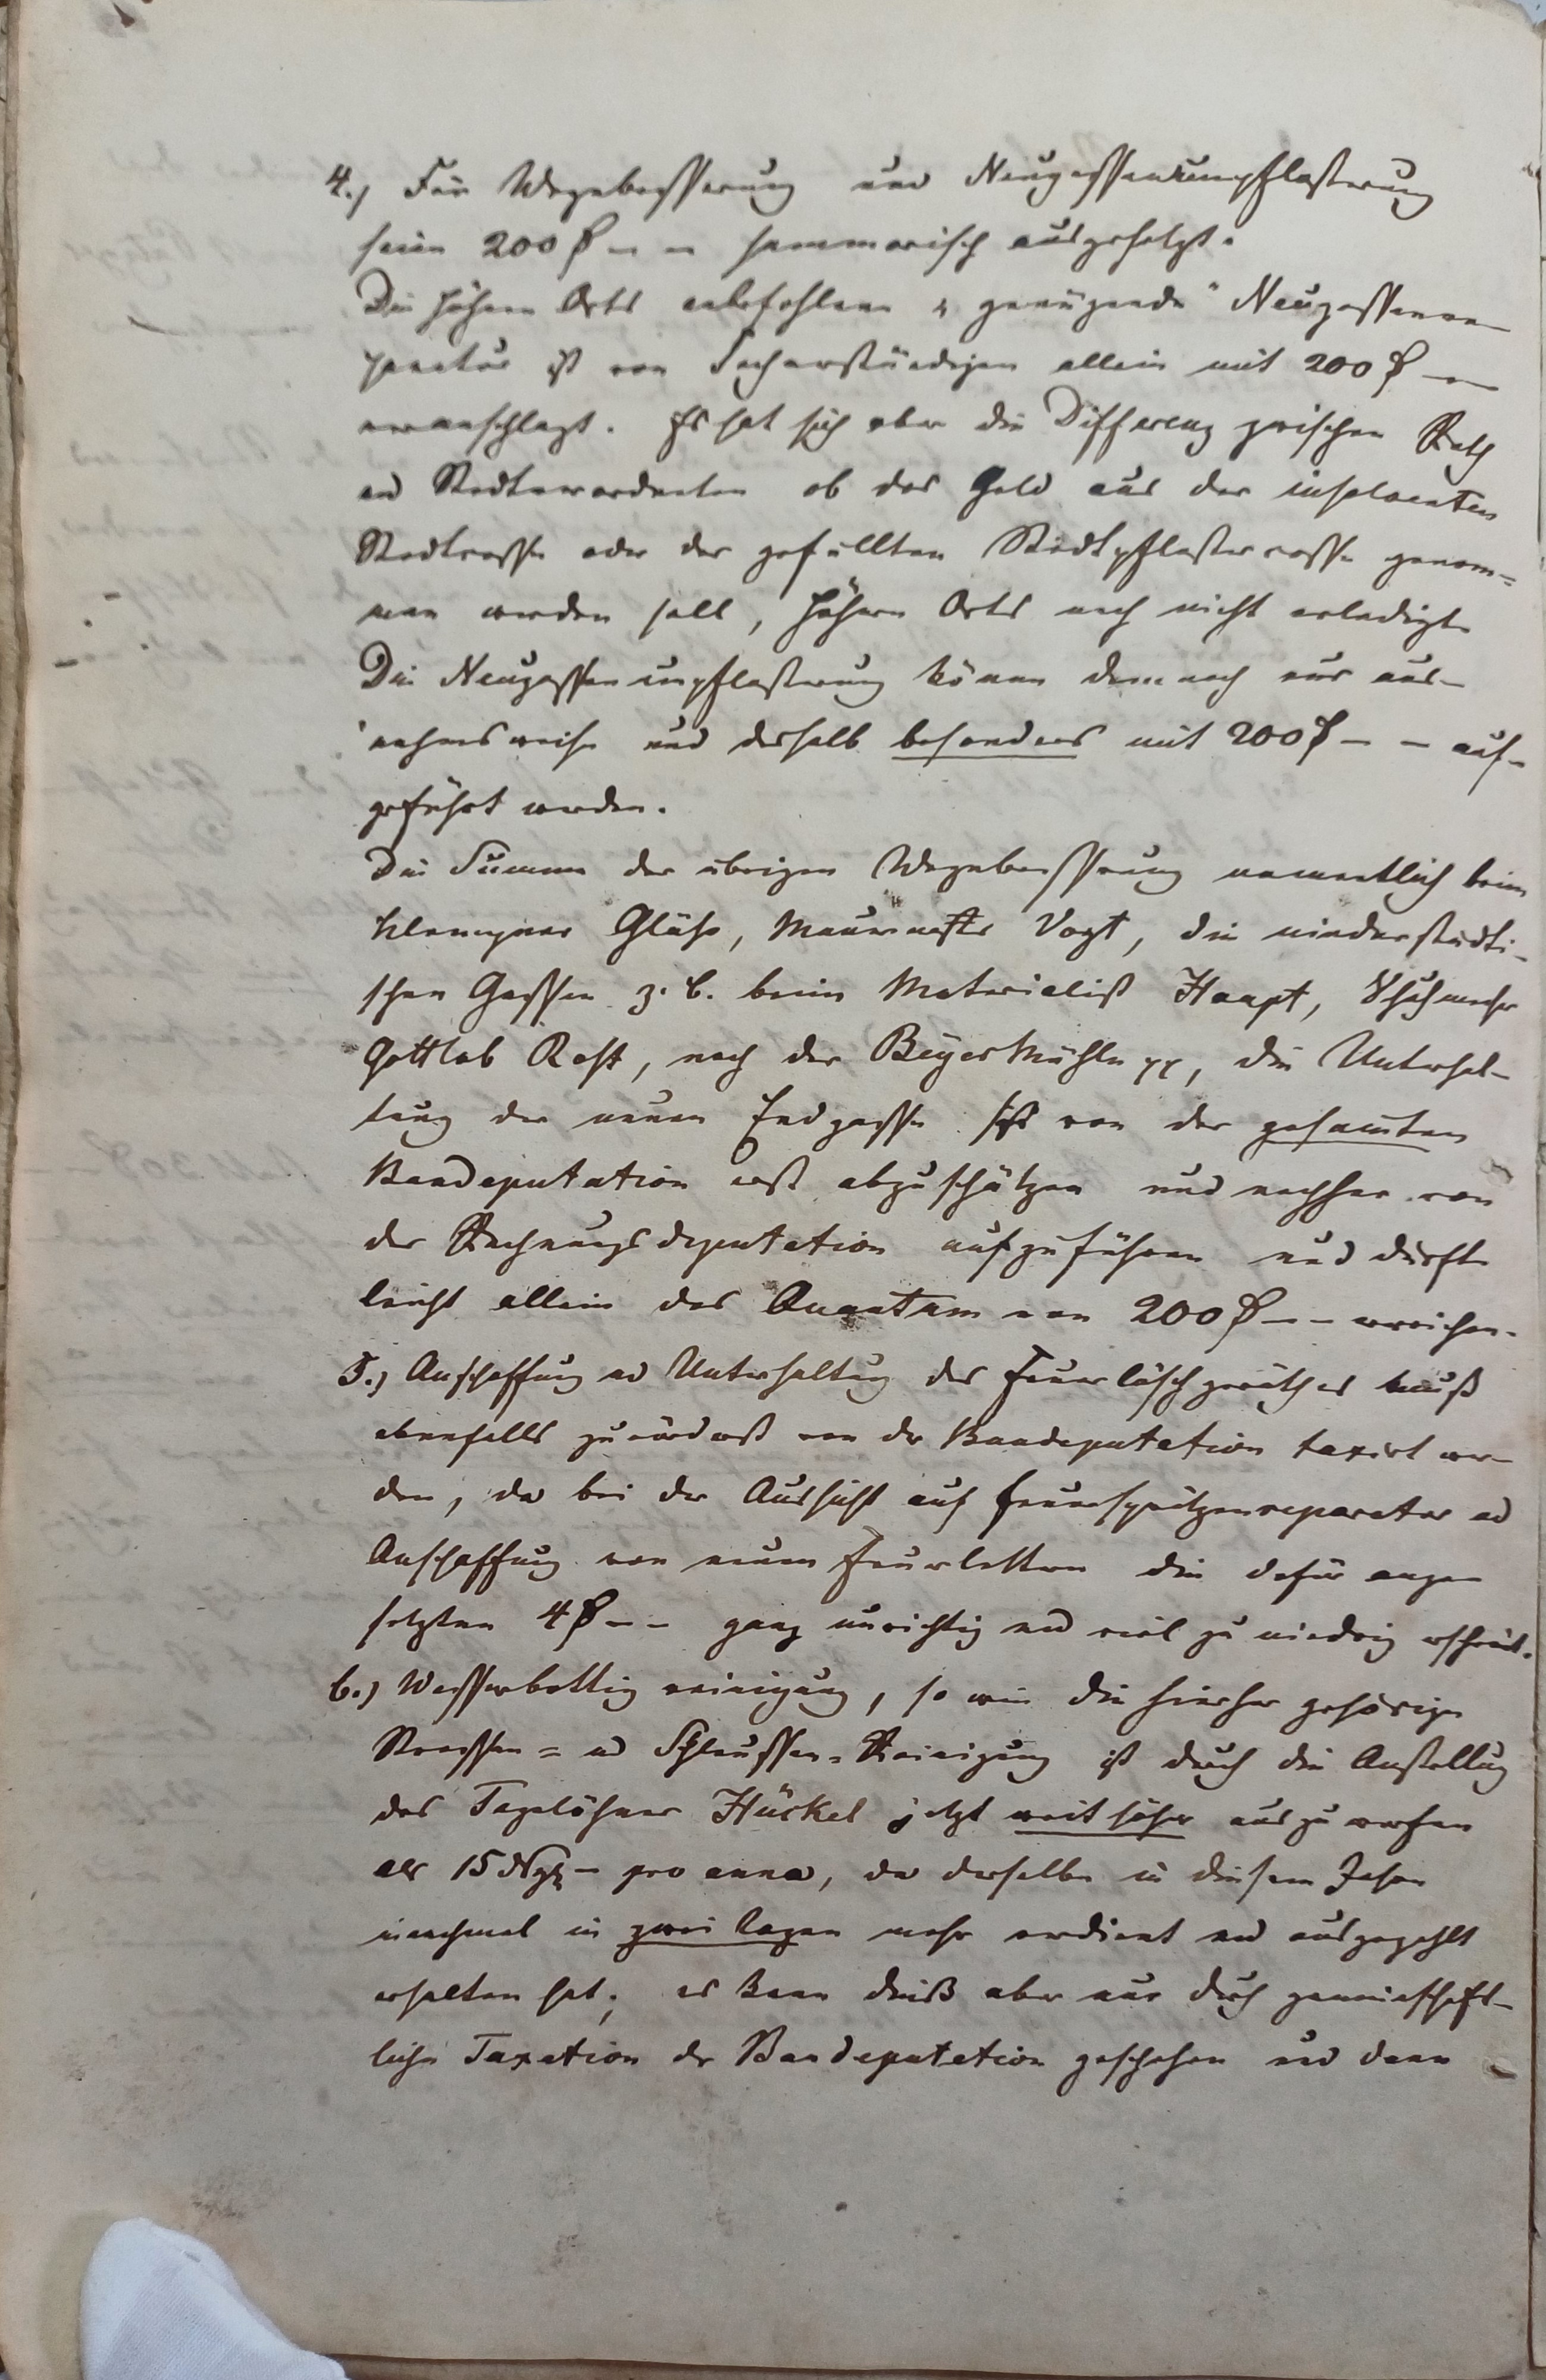 4.) Für Wegebesserung und Neugassenumpflasterung
seien 200 ₰ – – summarisch ausgesetzt.
Die höhern Orts anbefohlene „genügende" Neugassenre-
paratur ist von Sachverständigen allein mit 200 ₰ – –
veranschlagt. Es hat sich aber die Differenz zwischen Rath
und Stadtverordneten ob das Geld aus der insolventen
Stadtcasse oder der gefüllten Stadtpflastercasse genom=
men werden soll, höhern Orts noch nicht erledigt.
Die Neugassenumpflasterung könne demnach nur aus-
nahmsweise und deshalb besonders mit 200 ₰ – – auf-
geführt werden.
Die Summe der übrigen Wegebesserung namentlich beim
Klempner Gläß, Maurermstr Vogt, die niederstädti-
schen Gassen z. b. beim Materialist Haupt, Schuhmacher
Gottlob Rost, nach der Beyermühle pp, die Unterhal-
tung der neuen Endgasse ist von der gesamten
Baudeputation erst abzuschätzen und nachher von
der Rechnungsdeputation aufzuführen und dürfte
leicht allein das Quantum von 200 ₰ – – erreichen.
5.) Anschaffung und Unterhaltung der Feuerlöschgeräthes muß
ebenfalls zuvörderst von der Baudeputation taxirt wer-
den, da bei der Aussicht auf Feuerspritzenreparatur und
Anschaffung von neuen Feuerleitern die dafür ange-
setzten 4 ₰ – – ganz unrichtig und viel zu niedrig erscheint.
6.) Wasserbottigreinigung, so wie die hierher gehörige
Strassen= und Schleussen=Reinigung ist durch die Anstellung
des Tagelöhner Hückel jetzt weit höher auszuwerfen
als 15 Ngr – pro anno, da derselbe in diesem Jahre
manchmal in zwei Tagen mehr verdient und ausgezahlt
erhalten hat; es kann dieß aber nur durch gemeinschaft-
liche Taxation der Baudeputation geschehen und dann